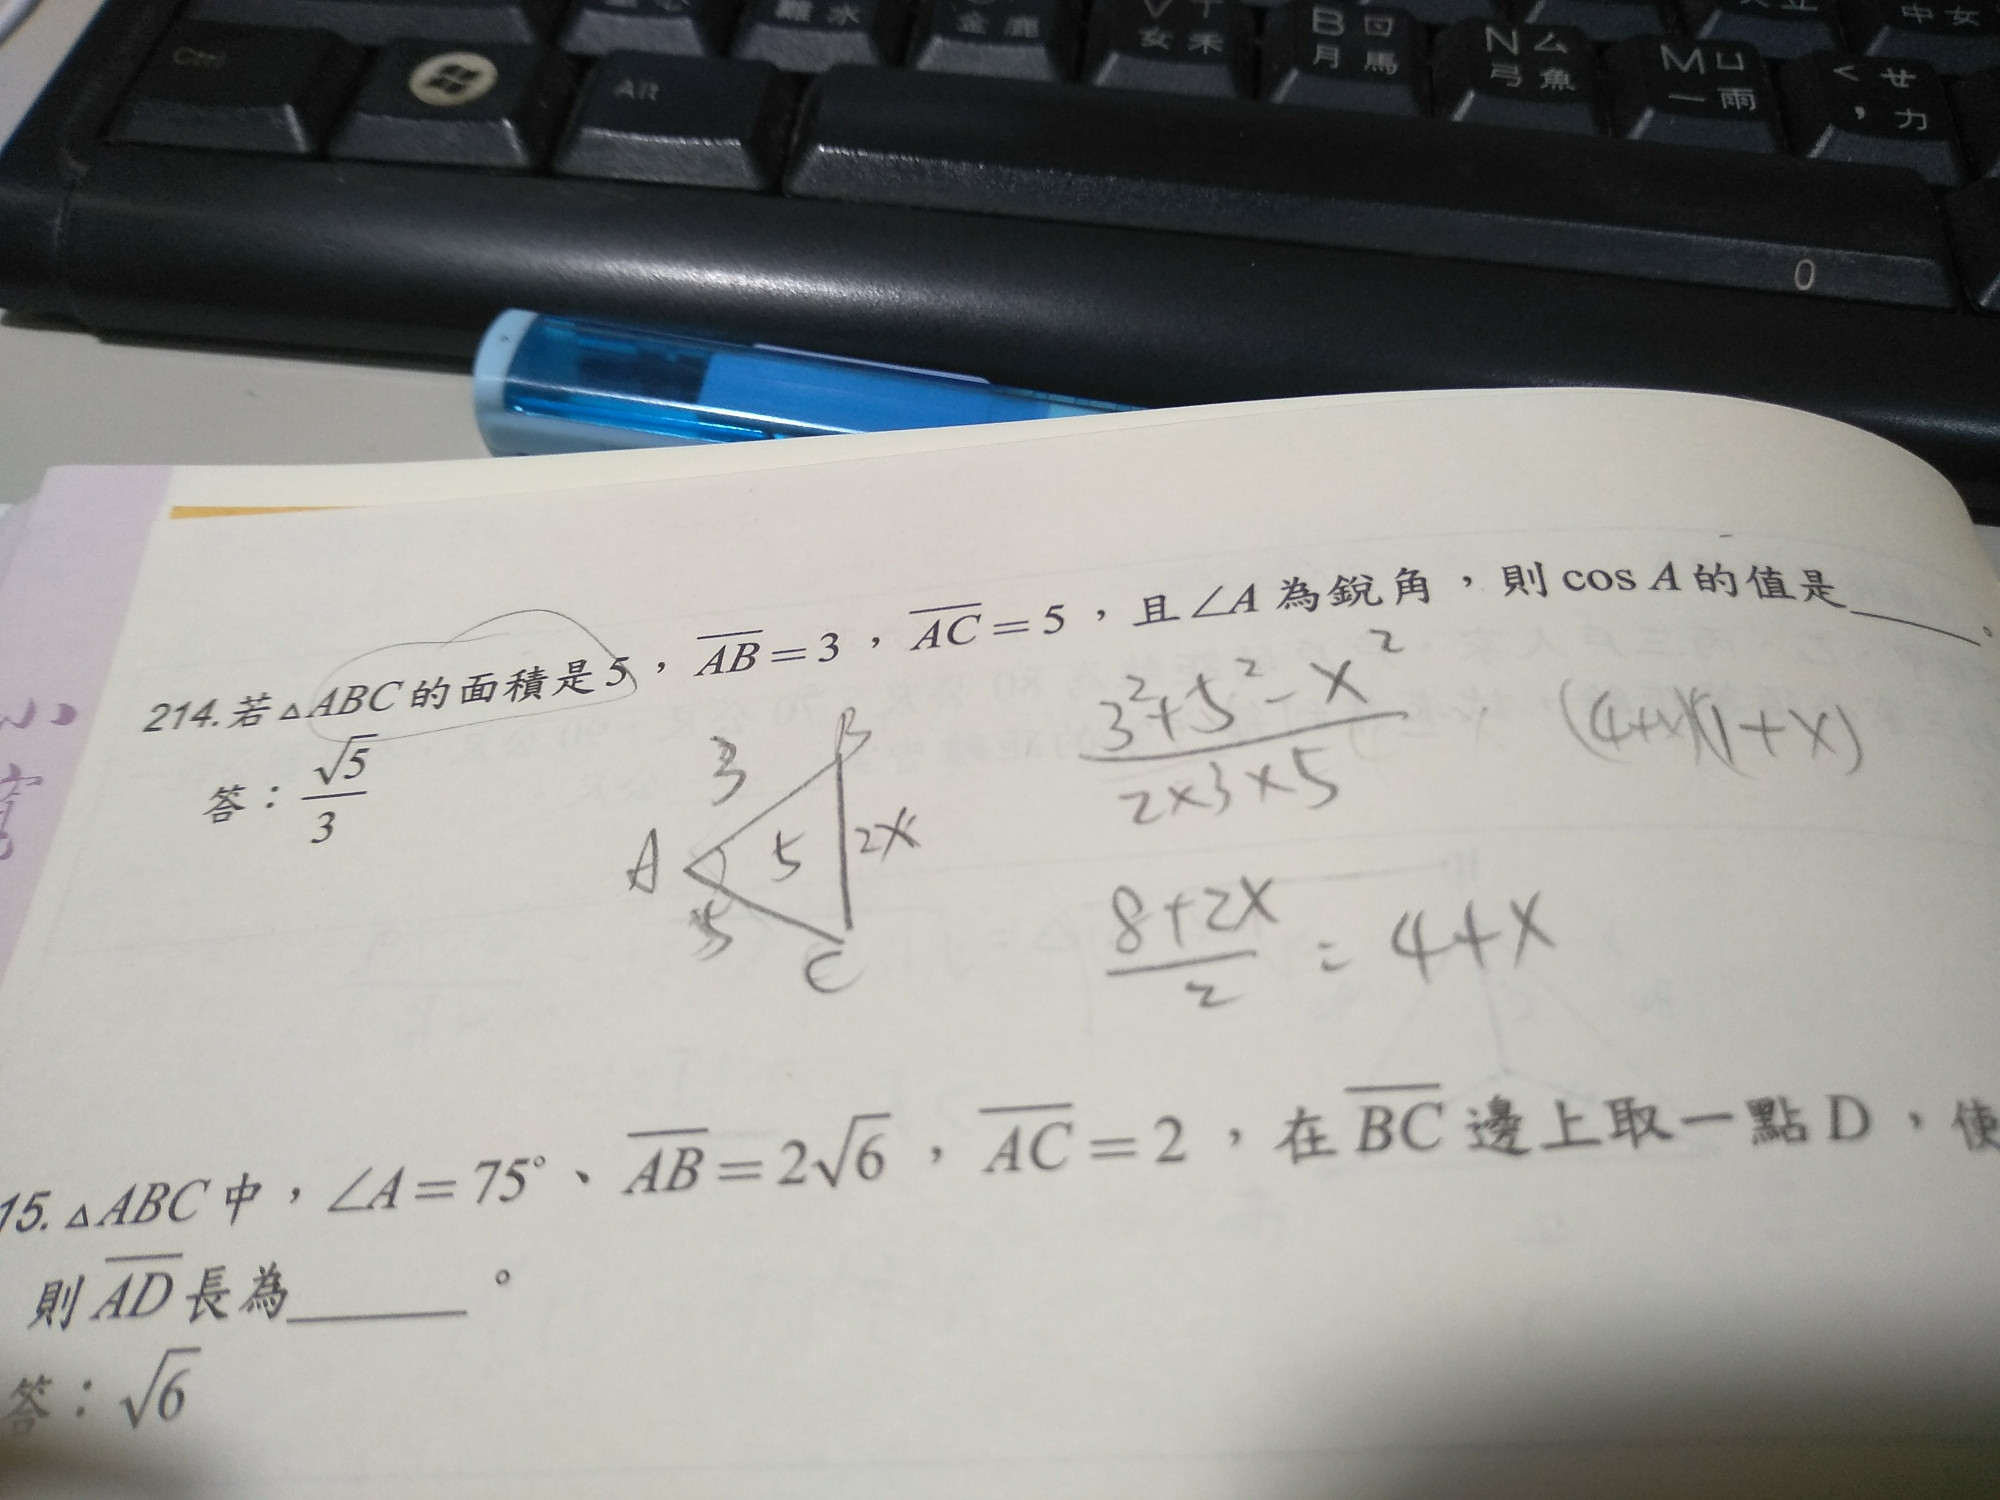 Ctrl
Alt
女 禾
B ㄖ
月 馬
N ㄙ
弓 魚
M ㄩ
一 雨
< ㄝ
, 力
中 女
金
水
0
小
214. 若△ABC的面積是5,AB=3,AC=5,且∠A為銳角,則cos A的值是____。
答:√5/3
3
B
A
5
2x
5
C
(3²+5²-x²)/(2×3×5)
(4+x)(1+x)
(8+2x)/2 = 4+x
15. △ABC中,∠A=75°、AB=2√6,AC=2,在BC邊上取一點D,使
則AD長為____。
答:√6